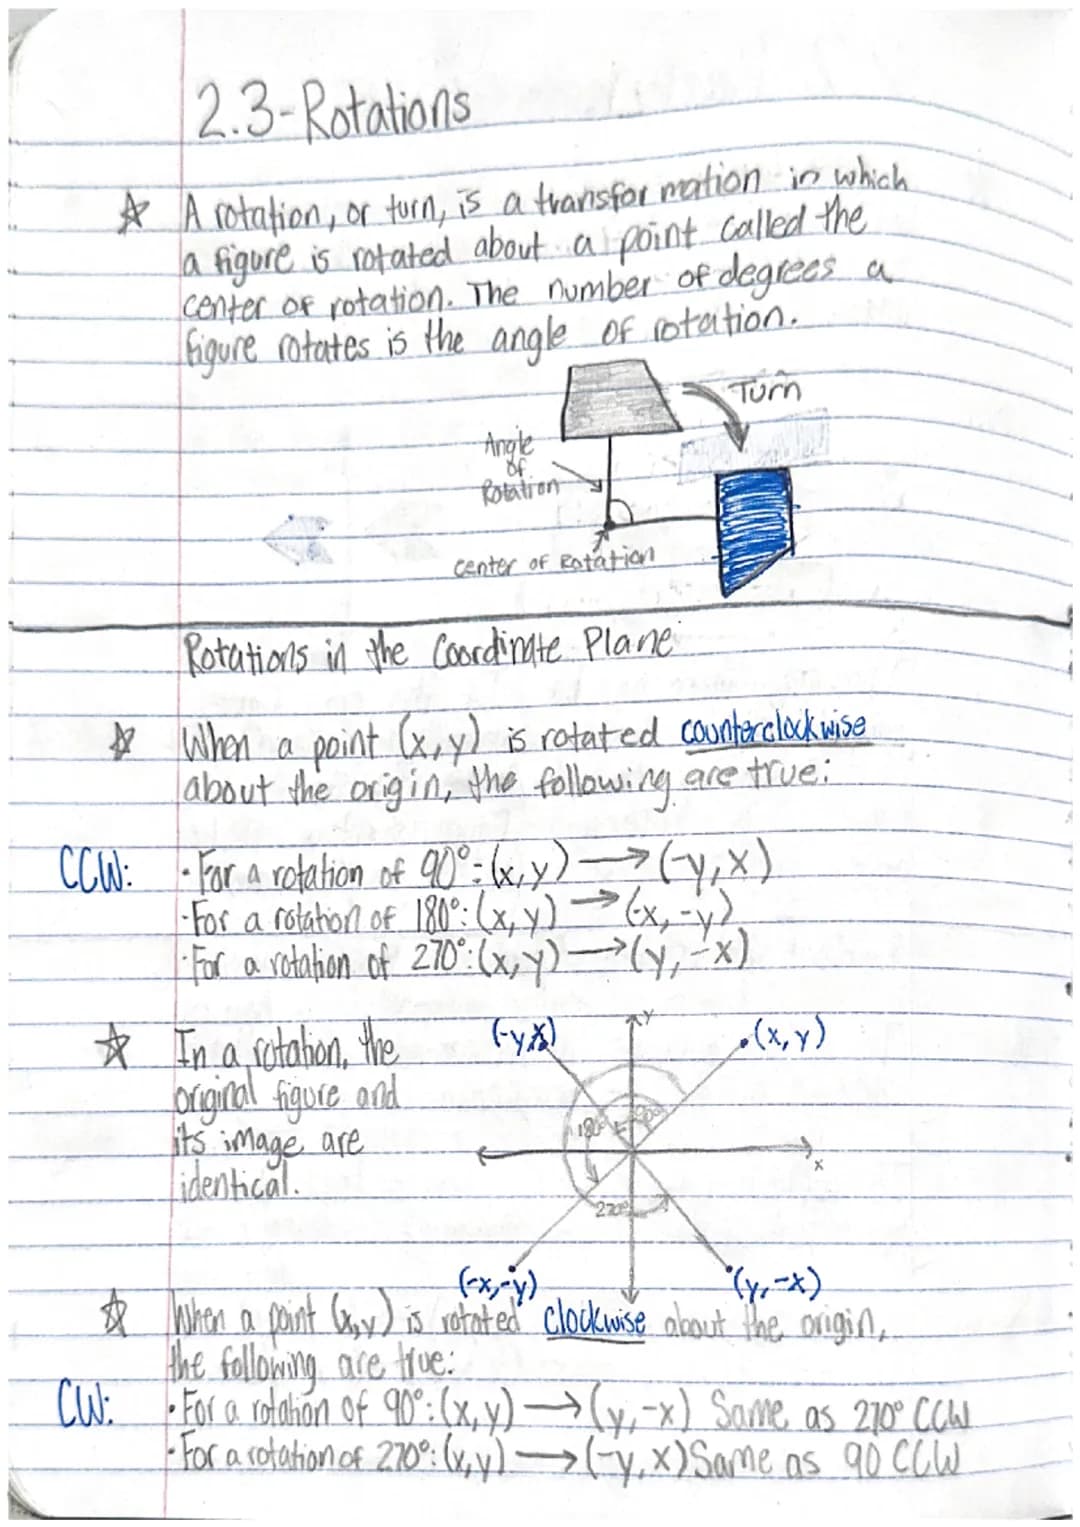 2.3-Rotations
☆ A rotation, or turn, is a transformation in which
a figure is rotated about a point called the
center of rotation. The number of degrees a
figure rotates is the angle of rotation.
Turn
Angle
of
Rotation
center of Rotation
Rotations in the Coordinate Plane
☆ When a point (x,y) is rotated counterclockwise
about the origin, the following are true:
CCW: · For a rotation of 90°: (x,y) → (-y,x)
· For a rotation of 180°: (x,y) → (-x,-y)
· For a rotation of 270°: (x,y) → (y,-x)
☆ In a rotation, the
original figure and
its image are
identical.
(-y,x)
y
(x,y)
90°
180°
x
270°
(-x,-y)
(y,-x)
☆ When a point (x,y) is rotated clockwise about the origin,
the following are true:
CW: · For a rotation of 90°: (x,y) → (y,-x) Same as 270° CCW
· For a rotation of 270°: (x,y) → (-y,x) Same as 90 CCW